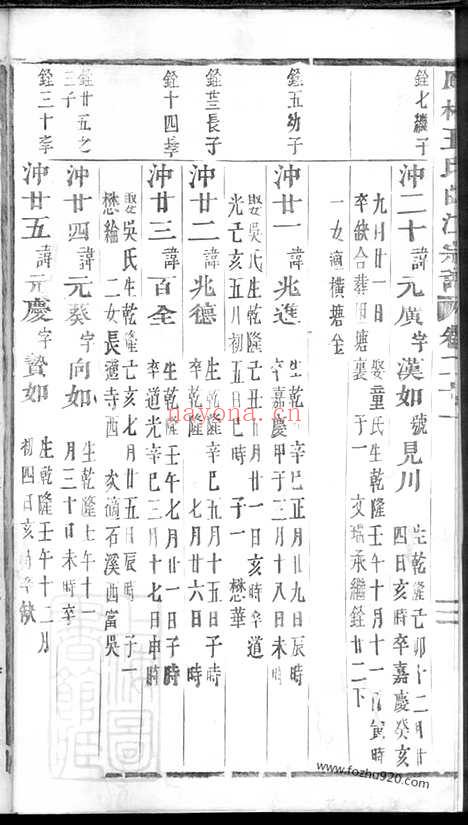 銓七繼子
沖二十諱元廣字漢如號見川
生乾隆己卯十二月廿四日亥時卒嘉慶癸亥
九月廿一日
娶童氏生乾隆壬午十月十一日寅時
卒缺合葬
子一
文瑞承繼銓廿二下
一女適橫塘金
銓五幼子
沖廿一諱兆進
生乾隆辛巳正月廿九日辰時
卒嘉慶甲子三月十八日未時
娶吳氏生乾隆己丑十月廿一日亥時卒道
光己亥五月初五日巳時
子一
懋華
長子
沖廿二諱兆德
生乾隆辛巳五月十五日子時
卒乾隆
七月廿六日
時
銓十四季子
沖廿三諱百全
生乾隆壬午七月廿一日子時
卒道光辛巳三月十七日申時
娶吳氏生乾隆乙亥七月廿五日辰時
子一
懋綸
二女長適寺西
次適石溪西富吳
銓廿五之三子
沖廿四諱元葵字向如
生乾隆壬午十一月三十日未時卒
銓三十季
沖廿五諱元慶字贊如
生乾隆壬午十二月初四日亥時卒缺
nayona.cn
www.fozhu920.com